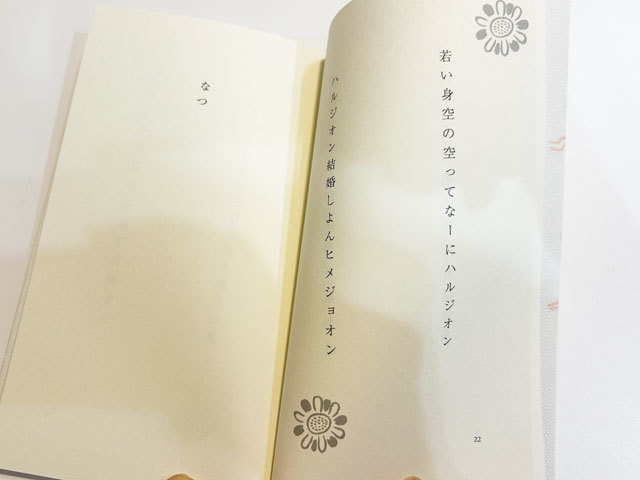 若い身空の空ってなーにハルジオン
ハルジオン結婚しよんヒメジョオン
22
なつ